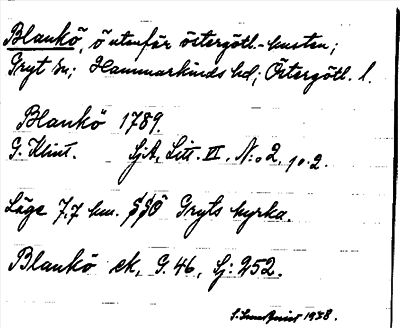 Blankö, ö utanför östergötl.-kusten;
Gryt sn; Hammarkinds hd; Östergötl. l.
Blankö 1789.
G. Klint. SjA, Litt. VI, N:o 2, p. 2.
Läge 7,7 km. SSÖ Gryts kyrka.
Blankö ek, G. 46, Sj: 252.
1938.